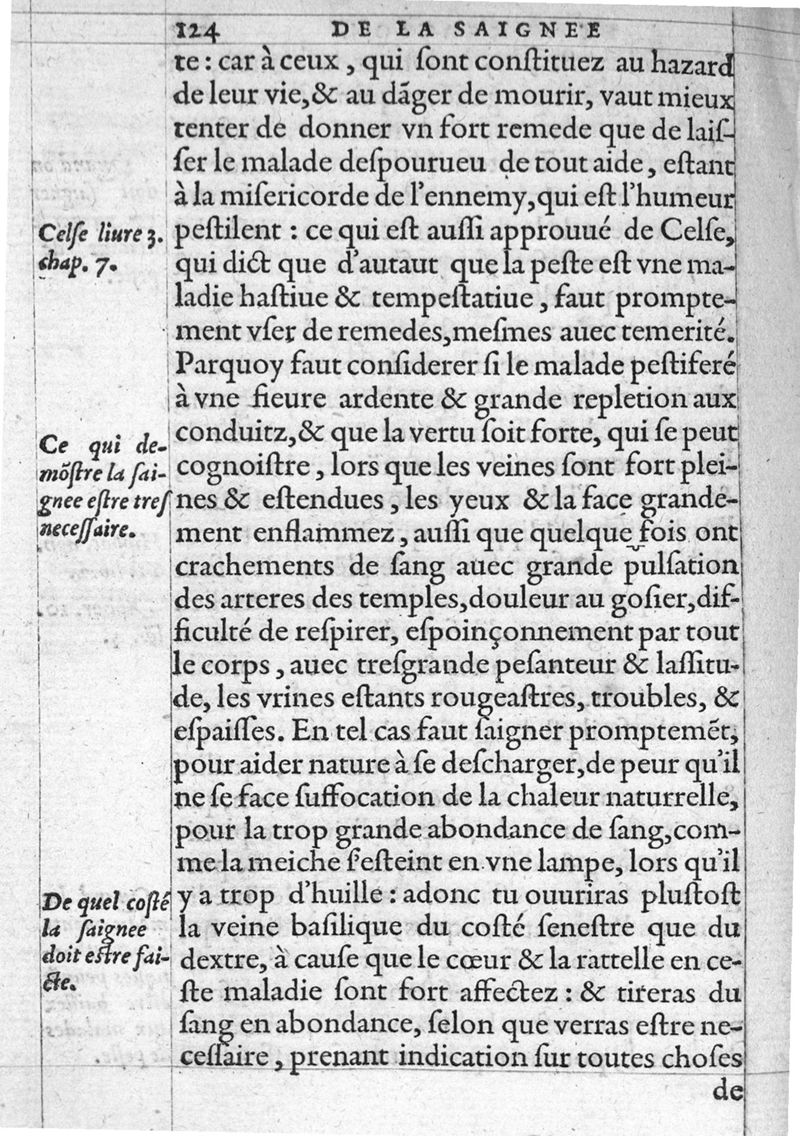 124 DE LA SAIGNEE
te : car à ceux , qui ſont conſtituez au hazard
de leur vie,& au dãger de mourir, vaut mieux
tenter de donner vn fort remede que de laiſ-
ſer le malade deſpourueu de tout aide , eſtant
à la miſericorde de l'ennemy,qui eſt l'humeur
Celſe liure 3.
chap. 7.
peſtilent : ce qui eſt auſſi approuué de Celſe,
qui dict que d'autaut que la peſte eſt vne ma-
ladie haſtiue & tempeſtatiue , faut prompte-
ment vſer de remedes,meſmes auec temerité.
Parquoy faut conſiderer ſi le malade peſtiferé
à vne fieure ardente & grande repletion aux
Ce qui de-
mõſtre la ſai-
gnee eſtre treſ
neceſſaire.
conduitz,& que la vertu ſoit forte, qui ſe peut
cognoiſtre , lors que les veines ſont fort plei-
nes & eſtendues , les yeux & la face grande-
ment enflammez , auſſi que quelque fois ont
crachements de ſang auec grande pulſation
des arteres des temples,douleur au goſier,dif-
ficulté de reſpirer, eſpoinçonnement par tout
le corps , auec treſgrande peſanteur & laſſitu-
de, les vrines eſtants rougeaſtres, troubles, &
eſpaiſſes. En tel cas faut ſaigner promptemẽt,
pour aider nature à ſe deſcharger,de peur qu'il
ne ſe face ſuffocation de la chaleur naturrelle,
pour la trop grande abondance de ſang,com-
me la meiche ſ'eſteint en vne lampe, lors qu'il
De quel coſté
la ſaignee
doit eſtre fai-
cte.
y a trop d'huille : adonc tu ouuriras pluſtoſt
la veine baſilique du coſté ſeneſtre que du
dextre, à cauſe que le cœur & la rattelle en ce-
ſte maladie ſont fort affectez : & tireras du
ſang en abondance, ſelon que verras eſtre ne-
ceſſaire , prenant indication ſur toutes choſes
de